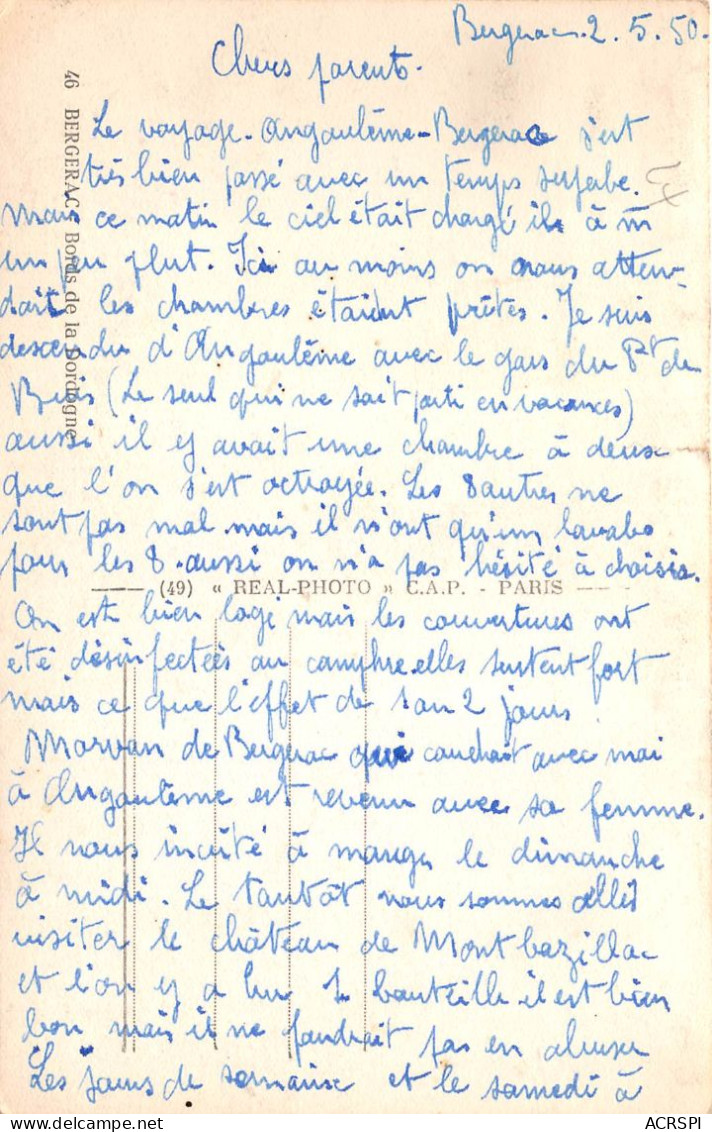 Bergerac. 2. 5. 50.
Chers parents.
Le voyage. Angoulême-Bergerac s'est
très bien passé avec un temps superbe.
Mais ce matin le ciel était chargé il à m̄
un peu plut. Ici au moins on nous atten-
dait les chambres étaient prêtes. Je suis
descendu d'Angoulême avec le gars du Pt de
Buis (Le seul qui ne sait parti en vacances)
aussi il y avait une chambre à deux
que l'on s'est octroyée. Les 8 autres ne
sont pas mal mais il n'ont qu'un lavabo
pour les 8. aussi on n'a pas hésité à choisir.
On est bien logé mais les couvertures ont
été désinfectées au camphre. elles sentent fort
mais ce que l'effet de 1 ou 2 jours.
Morvan de Bergerac qui couchait avec moi
à Angoulême est revenu avec sa femme.
Il nous invité à manger le dimanche
à midi. Le tantôt nous sommes allés
visiter le château de Montbazillac
et l'on y a bu 1 bouteille il est bien
bon mais il ne faudrait pas en abuser
Les jours de semaine et le samedi à
46 BERGERAC Bords de la Dordogne
(49) « REAL-PHOTO » C.A.P. - PARIS
ACRSPI